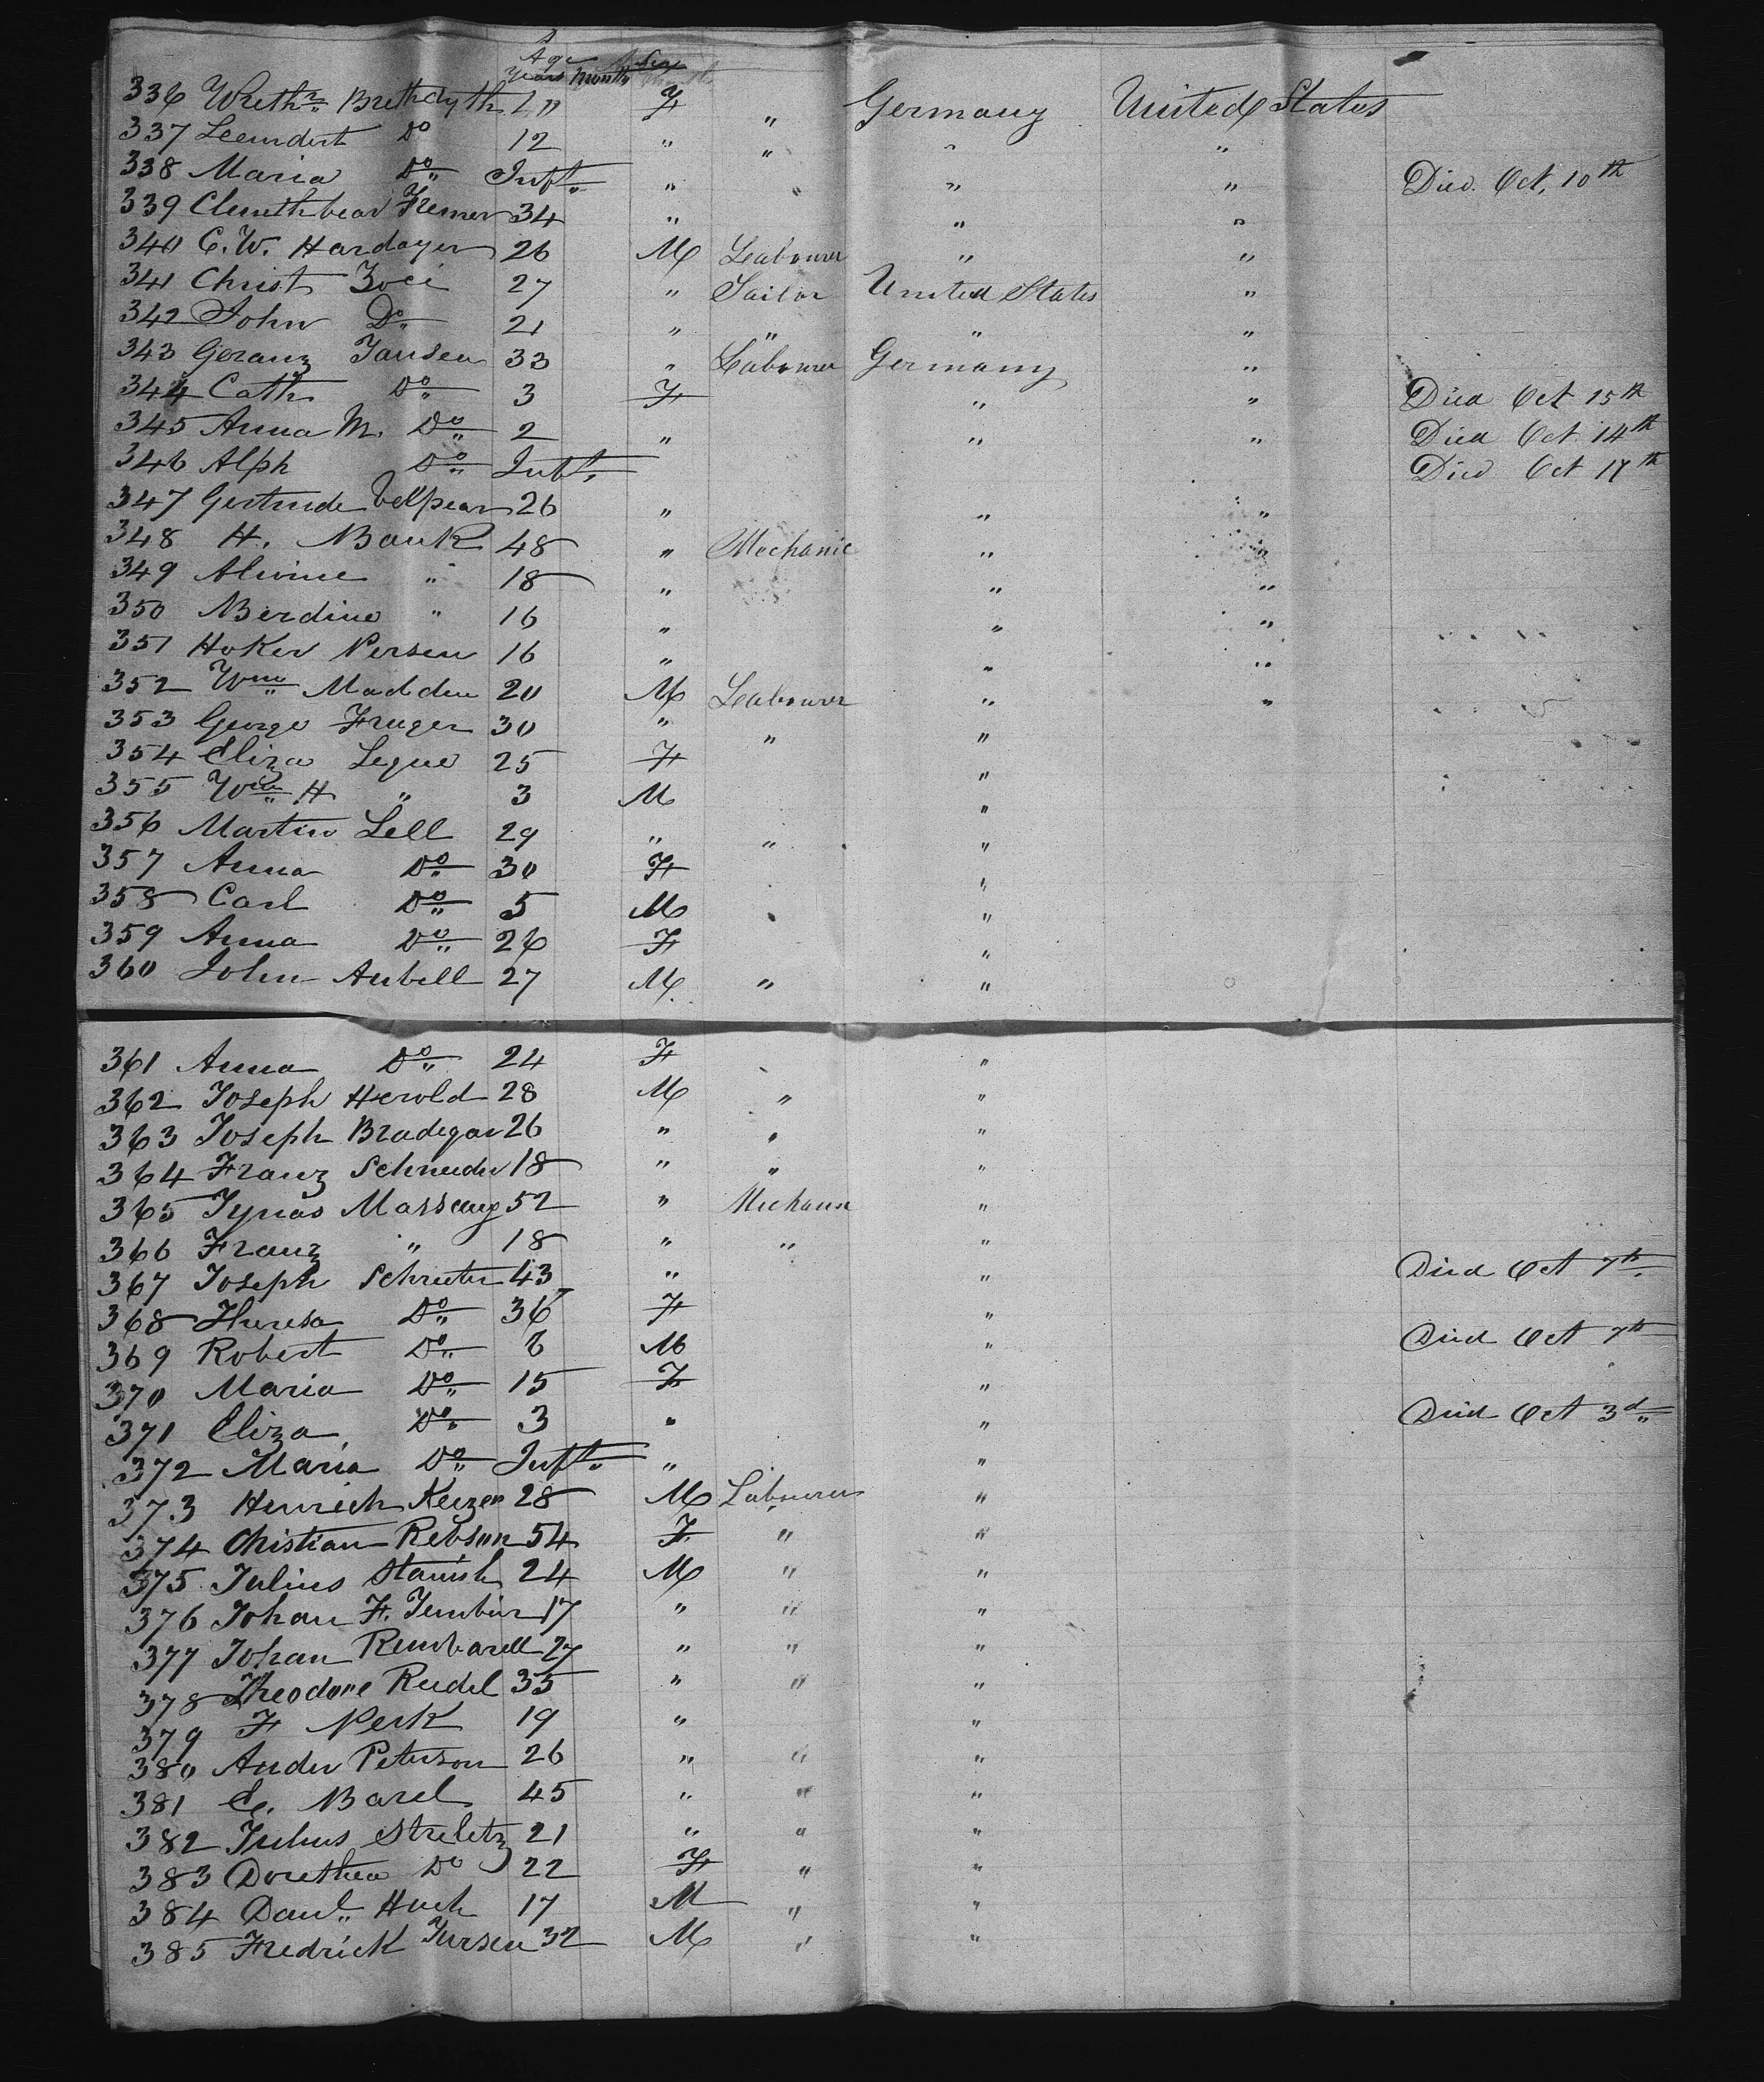 Age Sex
Years Months
336 Breth 20 F " Germany United States
337 Do 12 " " " "
338 Maria Do Inft " " " " Died Oct, 10th
339 Fremer 34 " " "
340 C. W. Hardayer 26 M Leabourer " "
341 Christ Zoei 27 " Sailor United States "
342 John Do 21 " " " "
343 Geranz Jansen 33 " Labourer Germany "
344 Cath Do 3 F " " Died Oct 15th
345 Anna M. Do 2 " " " Died Oct 14th
346 Alph Do Inft. Died Oct 17th
347 Gertrude Velpear 26 " " "
348 H. Bank 48 " Mechanic " "
349 Alwine " 18 " " "
350 Berdine " 16 " " "
351 Hoken Persen 16 " " "
352 Wm Madden 20 M Leabourer " "
353 George Fruger 30 " " "
354 Eliza Legue 25 F "
355 Wm H " 3 M "
356 Martin Lell 29 " " "
357 Anna Do 30 F "
358 Carl Do 5 M "
359 Anna Do 26 F "
360 John Anbell 27 M. " "
361 Anna Do 24 F "
362 Joseph Herold 28 M " "
363 Joseph Bradegar 26 " " "
364 Franz Schneider 18 " " "
365 Massang 52 " Mechanic "
366 Franz " 18 " " "
367 Joseph Schreeter 43 " " Died Oct 7th
368 Theresa Do 36 F "
369 Robert Do 6 M " Died Oct 7th
370 Maria Do 15 F "
371 Eliza Do 3 " " Died Oct 3d
372 Maria Do Inft " "
373 Henrich Keizer 28 M Labourer "
374 Christian Rebson 54 F. " "
375 Julius Stanish 24 M " "
376 Johan F. 17 " " "
377 Johan Rembarell 27 " " "
378 Theodore Reidel 35 " " "
379 F Perk 19 " "
380 Ander Peterson 26 " " "
381 Barel 45 " " "
382 Julius Streletz 21 " " "
383 Dorethea Do 22 F " "
384 Danl. Hoch 17 M " "
385 Fredrick Jursen 32 M " "